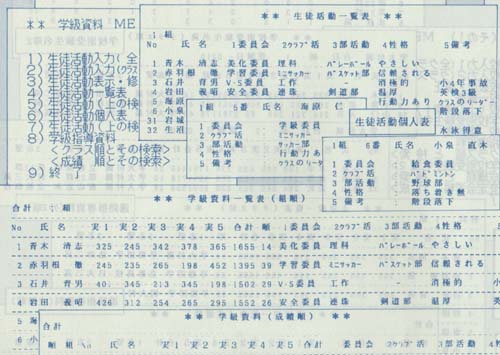 ** 学級資料 ME
1) 生徒活動入力(全
2) 生徒活動入力(クラス
3) 生徒活動表示・修
4) 生徒活動一覧表
5) 生徒活動(上の検
6) 生徒活動個人表
7) 生徒活動(上の検
8) 学級指導資料
<クラス順とその検索>
<成績 順とその検索>
9) 終了
** 生徒活動一覧表 **
1組
No 氏名 1委員会 2クラブ活 3部活動 4性格 5備考
1 青木 清志 美化委員 理科 バレーボール やさしい
2 赤羽根 徹 学習委員 ミニサッカー バスケット部 信頼される
3 石井 育男 V・S委員 工作 - 消極的 小4年事故
4 岩田 義昭 安全委員 連珠 剣道部 温厚 英検3級
5 海原 行動力あり クラスのリーダ
6 小泉 階段落下
31 若城
32 生沼 永詠得意
1組 5番 海原 仁
1 委員会 : 学級委員
2 クラブ活 : ミニサッカー
3 部活動 : サッカー
4 性格 : 行動力あ
5 備考 : クラスのリーダ
生徒活動個人表
1組 6番 小泉 直木
1 委員会 : 給食委員
2 クラブ活 : バドミントン
3 部活動 : 野球部
4 性格 : 落ち着き無
5 備考 : 階段落下
** 学級資料一覧表(組順) **
合計 : 組
No 氏名 実1 実2 実3 実4 実5 合計 順 1委員会 2クラブ活 3部活動 4性格
1 青木 清志 325 245 342 378 365 1655 14 美化委員 理科 バレーボール やさしい
2 赤羽根 徹 245 235 265 198 452 1395 39 学習委員 ミニサッカー バスケット部 信頼される
3 石井 育男 40 345 213 345 198 1502 29 V・S委員 工作 - 消極的 小
4 岩田 義昭 426 312 254 265 295 1552 26 安全委員 連珠 剣道部 温厚 英
5 海
6 小
** 学級資料(成績順) **
合計
順 組 No 氏名 実1 実2 実3 実4 実5 合計 順 1委員会 2クラブ活 3部活動